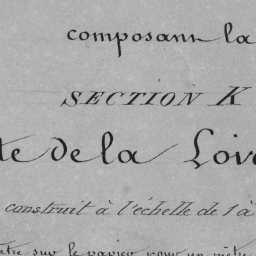 composant la
SECTION K
te de la Loir
construit à l'échelle de 1 à
sur le papier pour un mètre